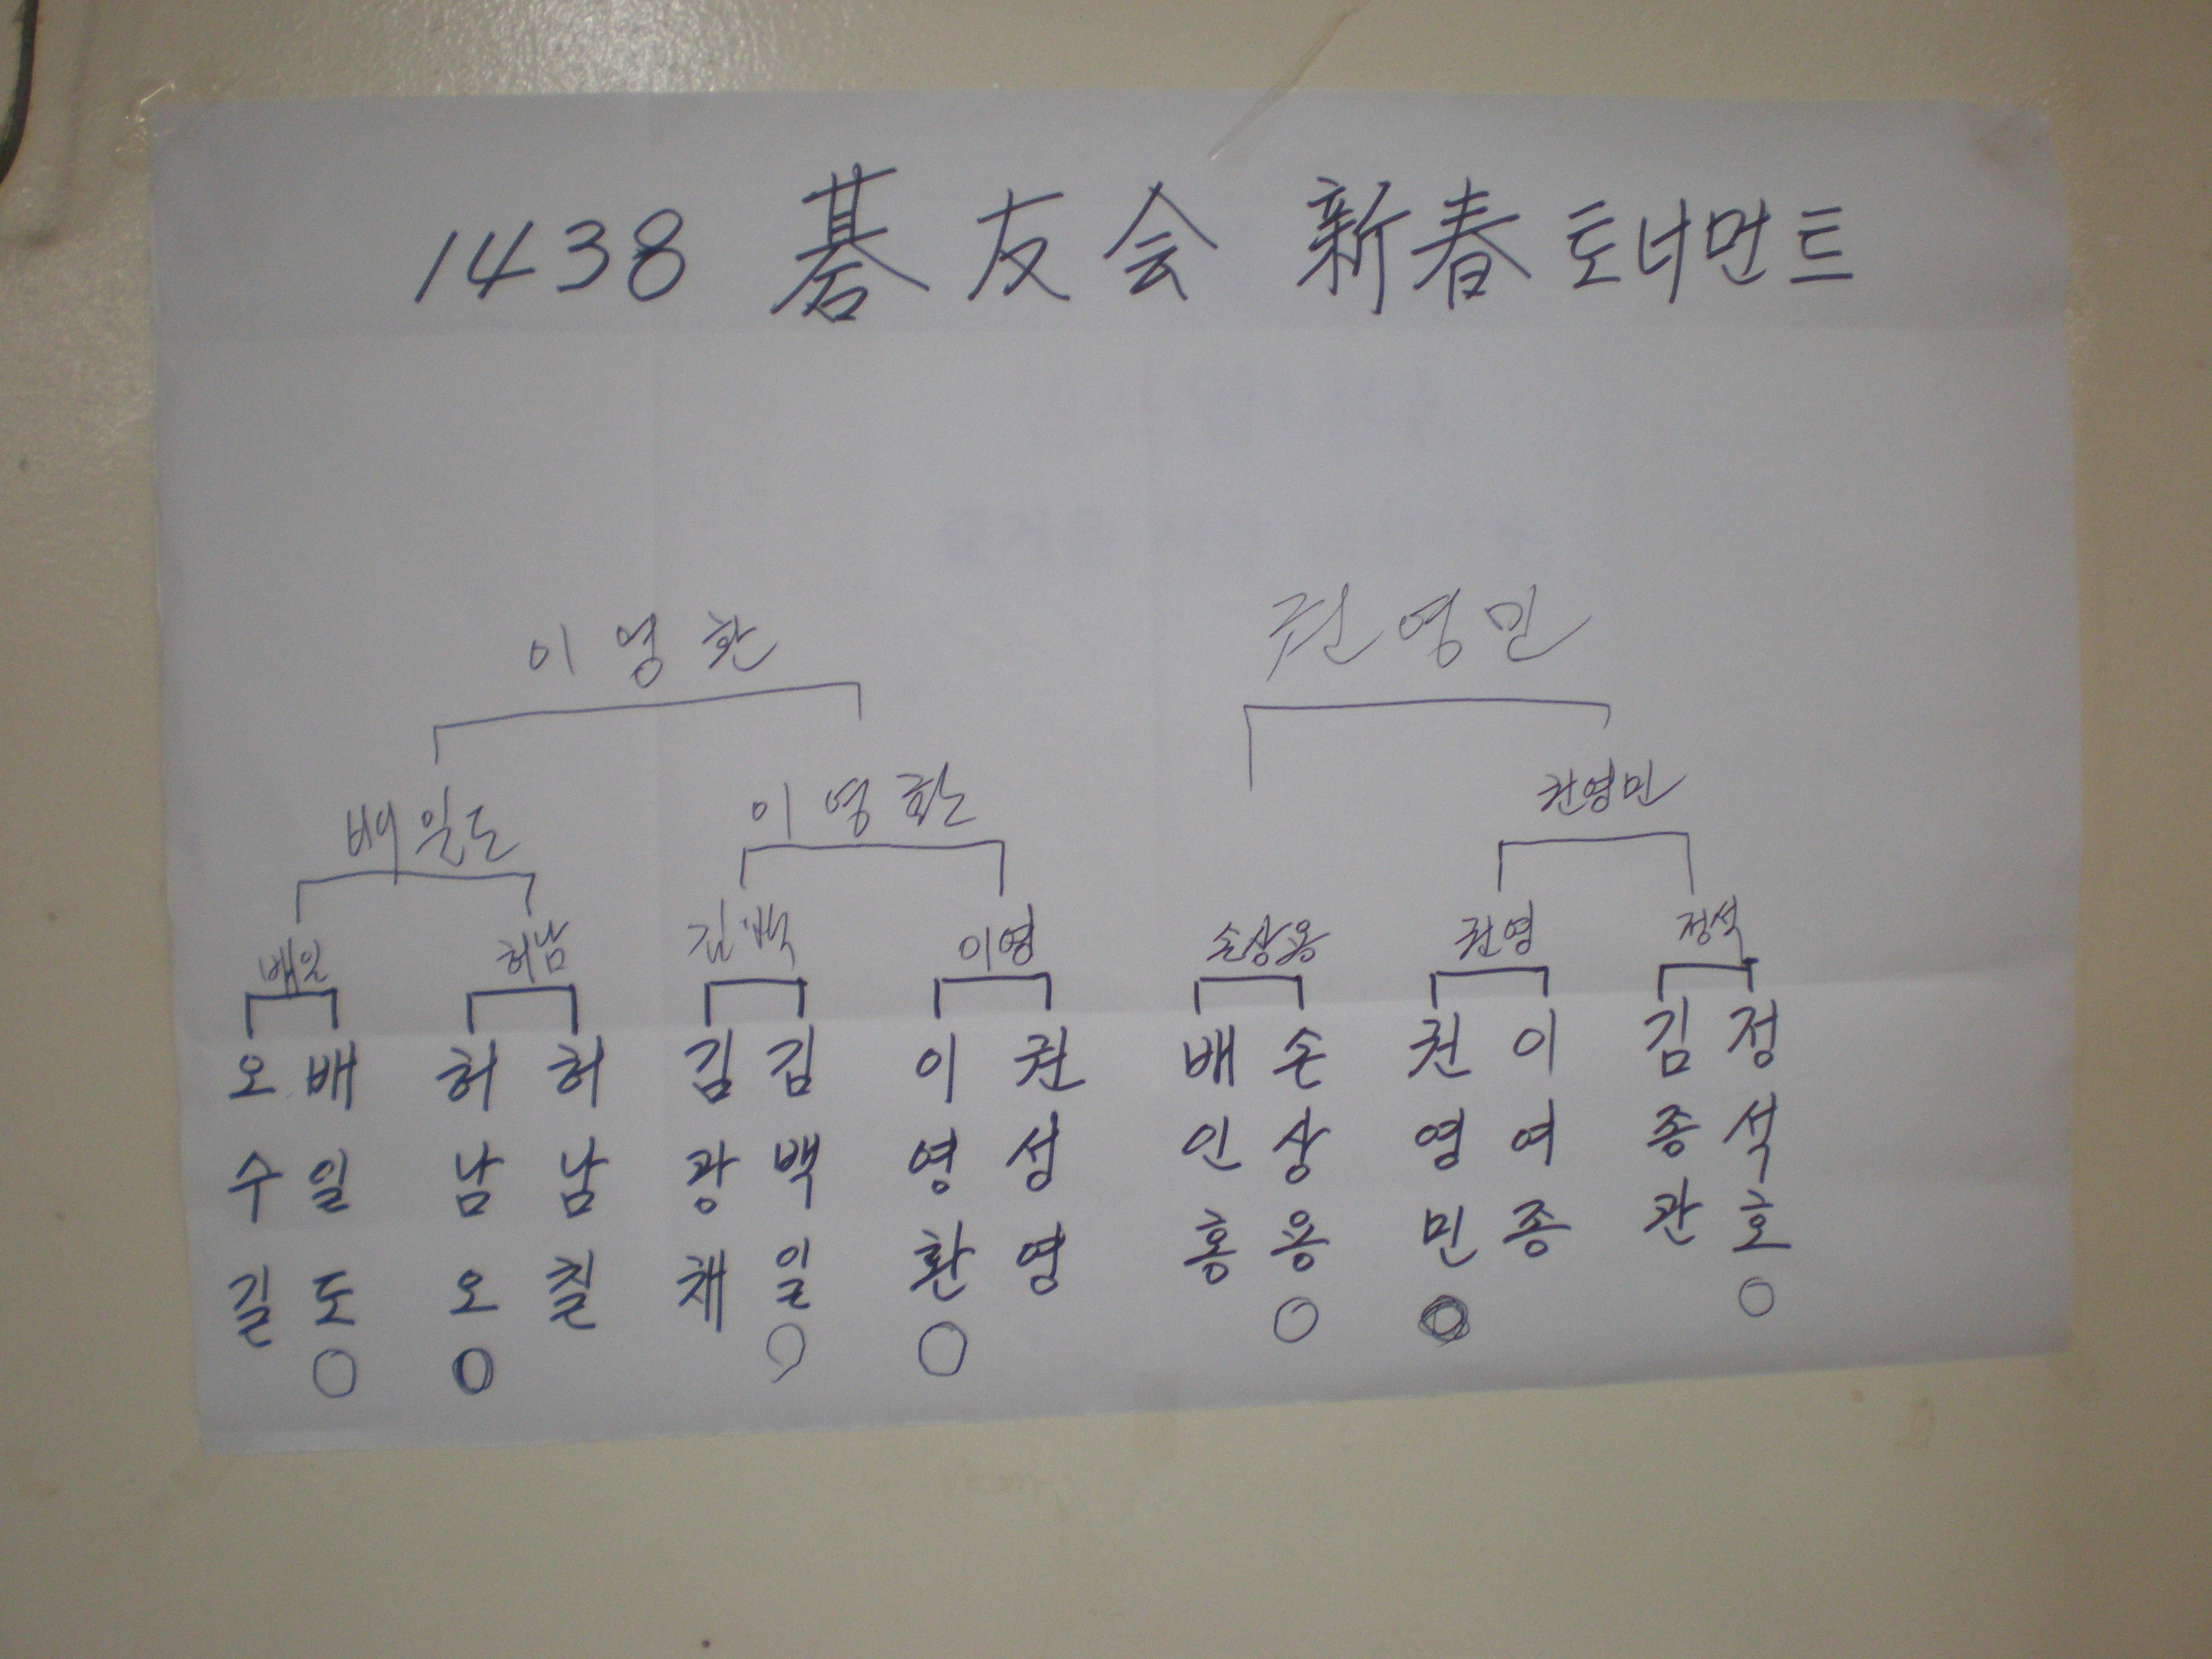 1438 碁友会 新春 토너먼트
이영환 권영민
배일도 이영환 권영민
배일 허남 김백 이영 손상용 권영 정석
오수길 배일도 허남오 허남칠 김광채 김백일 이영환 권성영 배인홍 손상용 권영민 이여종 김종관 정석호